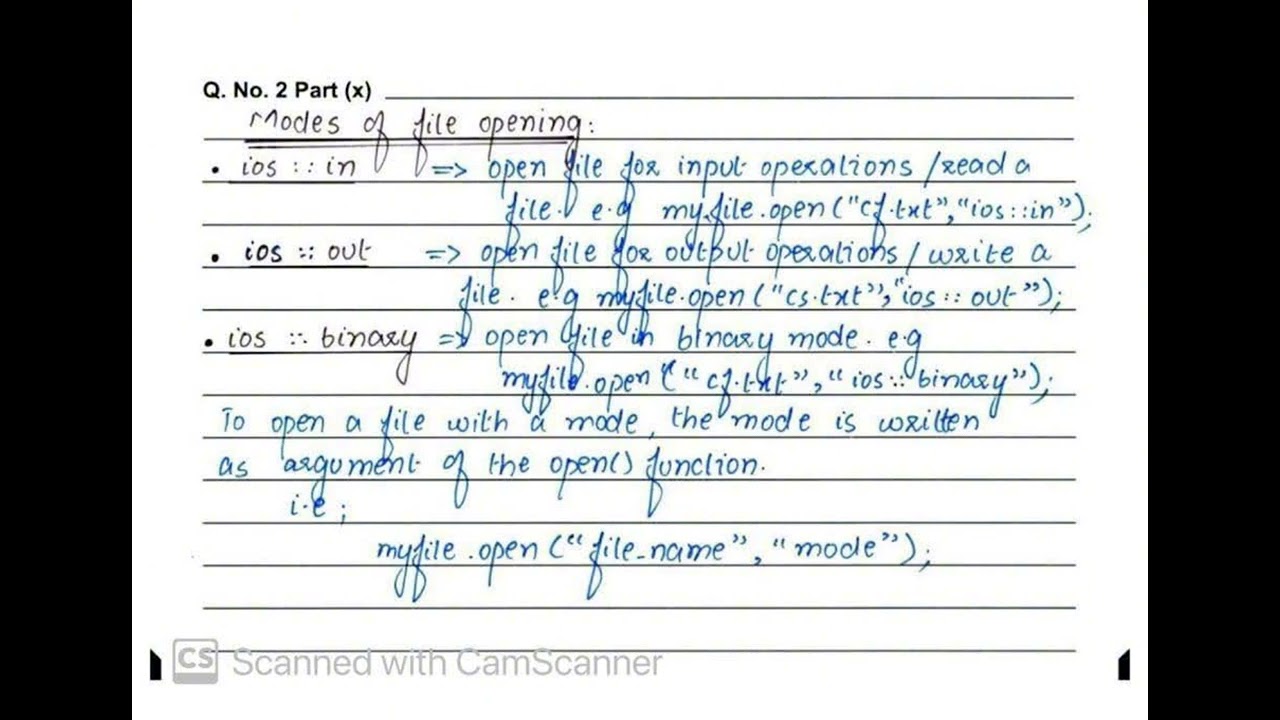 Q. No. 2 Part (x)
Modes of file opening:
• ios :: in => open file for input operations /read a
file. e.g my.file.open ("cf.txt", "ios::in");
• ios :: out => open file for output operations / write a
file. e.g myfile.open ("cs.txt", "ios :: out");
• ios :: binary => open file in binary mode. e.g
myfile.open ("cf.txt", "ios :: binary");
To open a file with a mode, the mode is written
as argument of the open() function.
i.e ;
myfile.open ("file_name", "mode");
CS Scanned with CamScanner